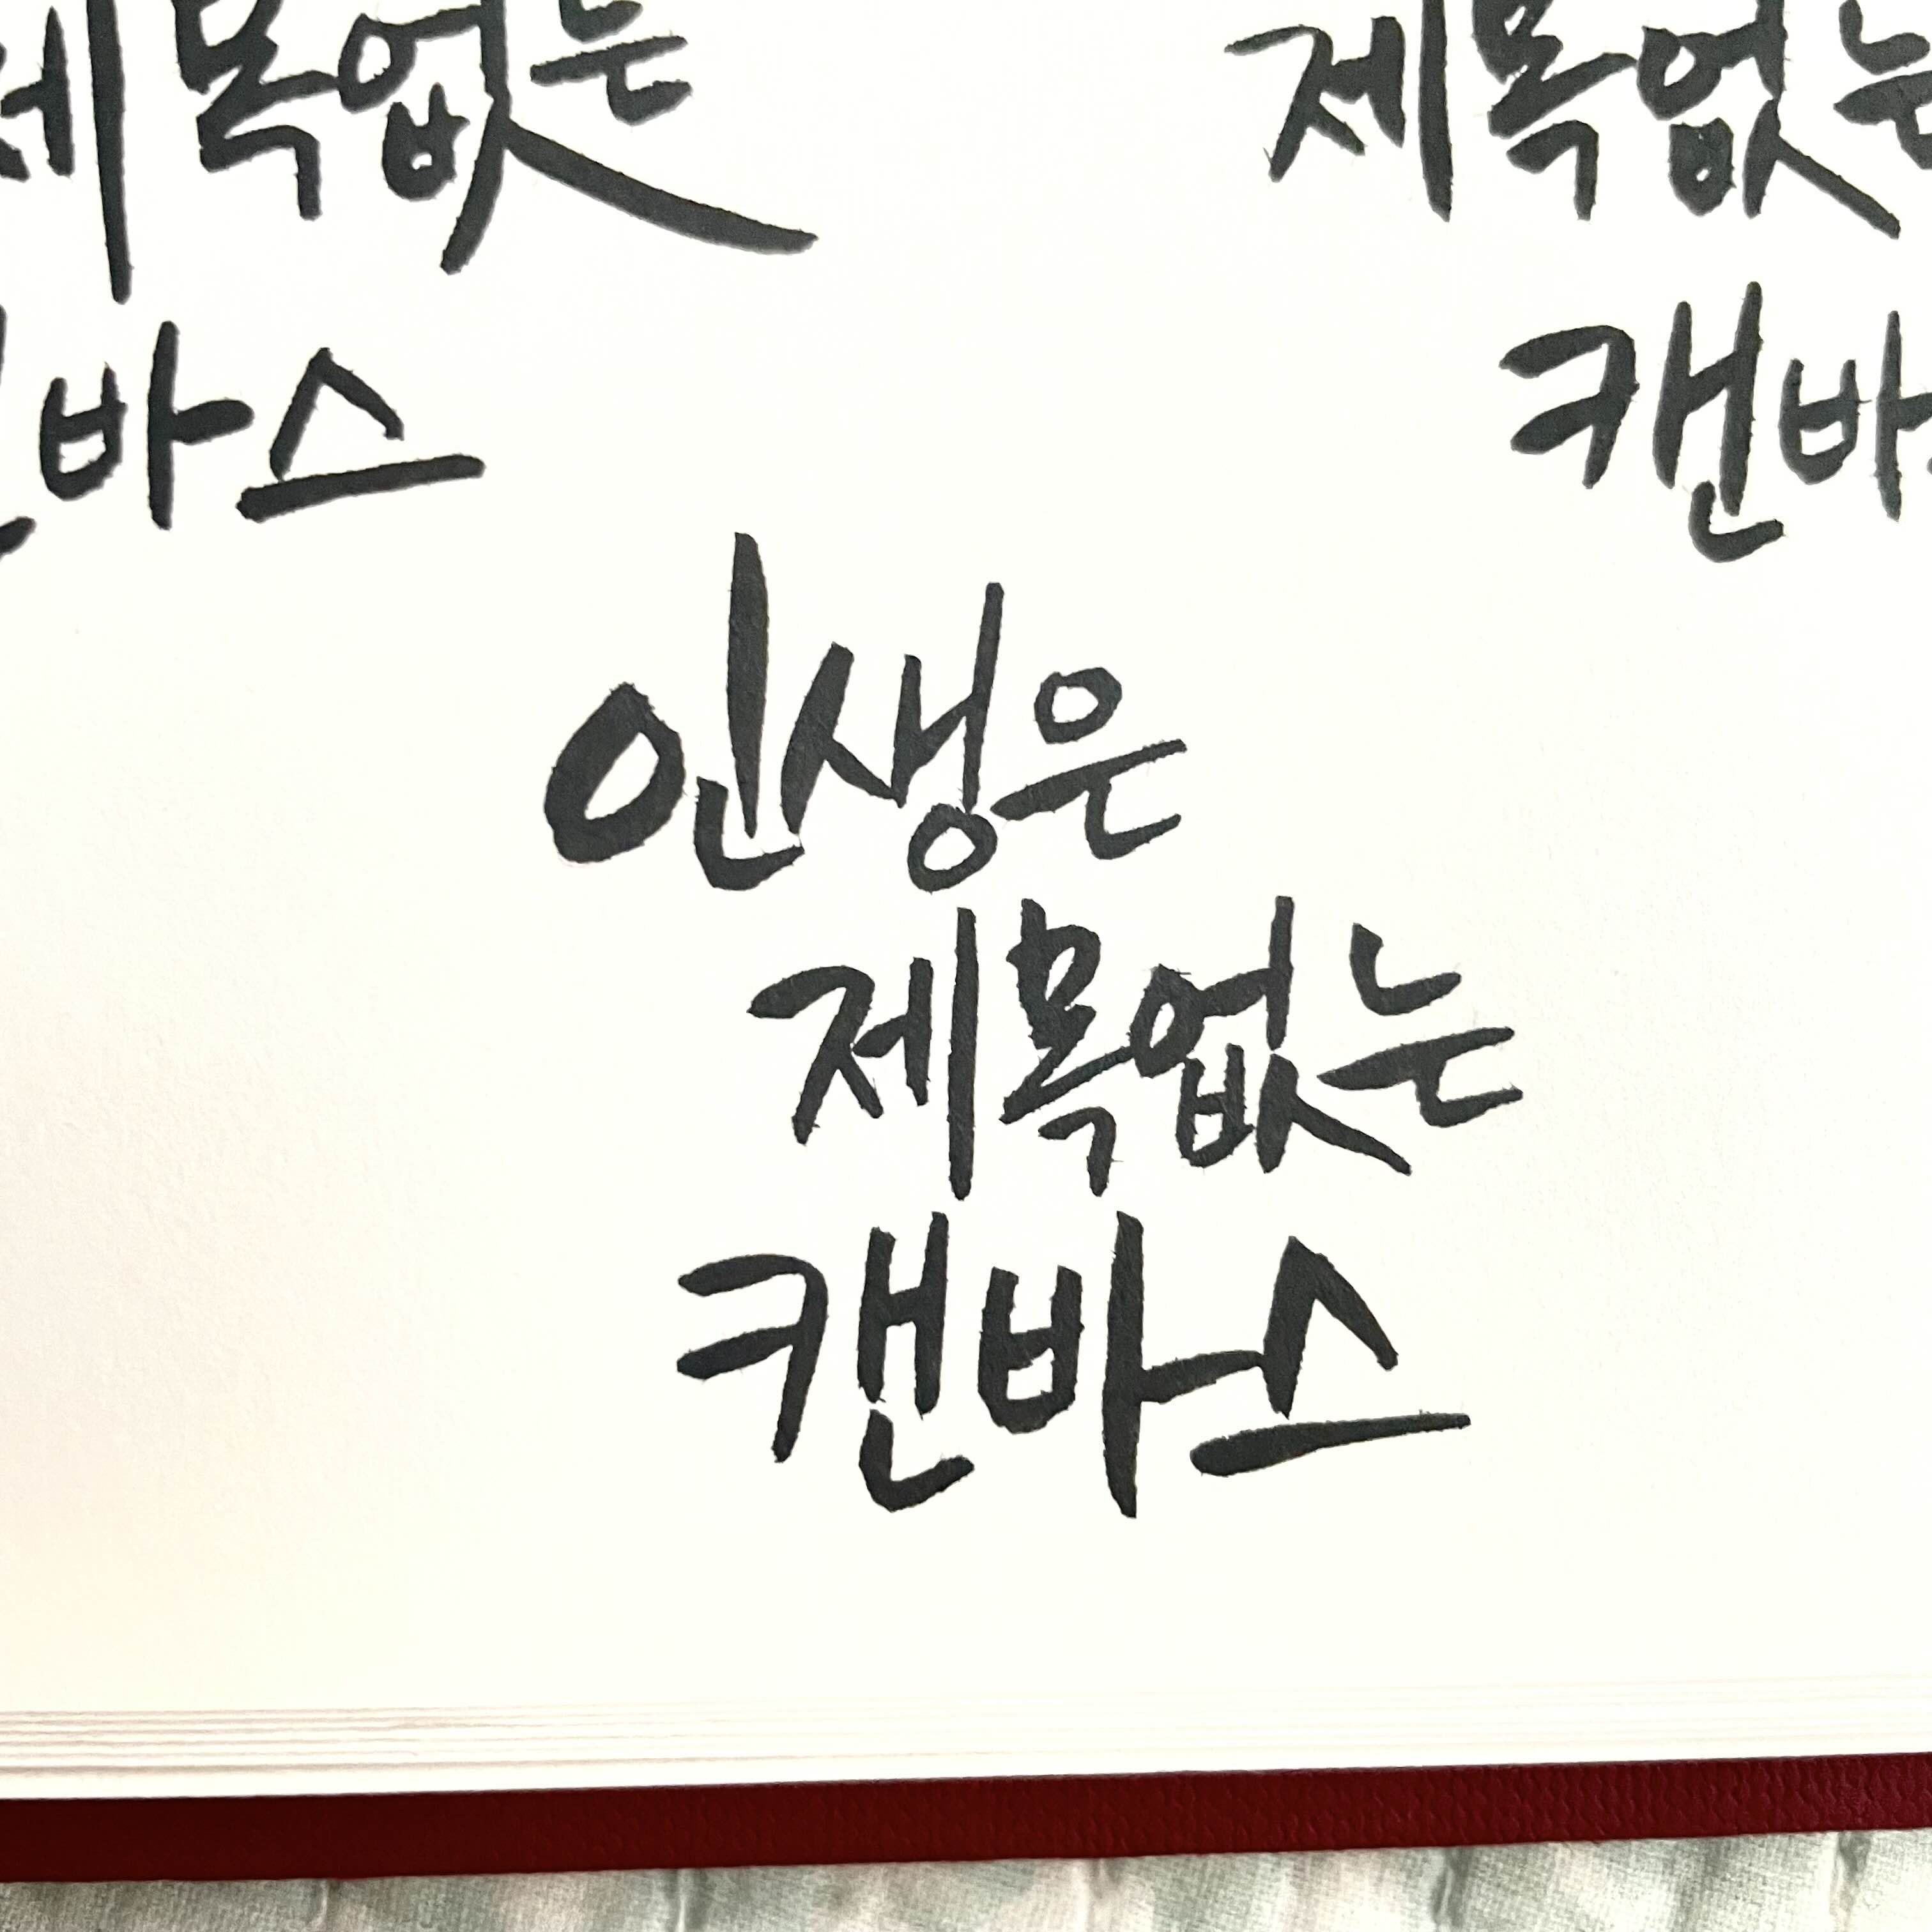 제목없는
바스
제목없는
캔바
인생은
제목없는
캔바스